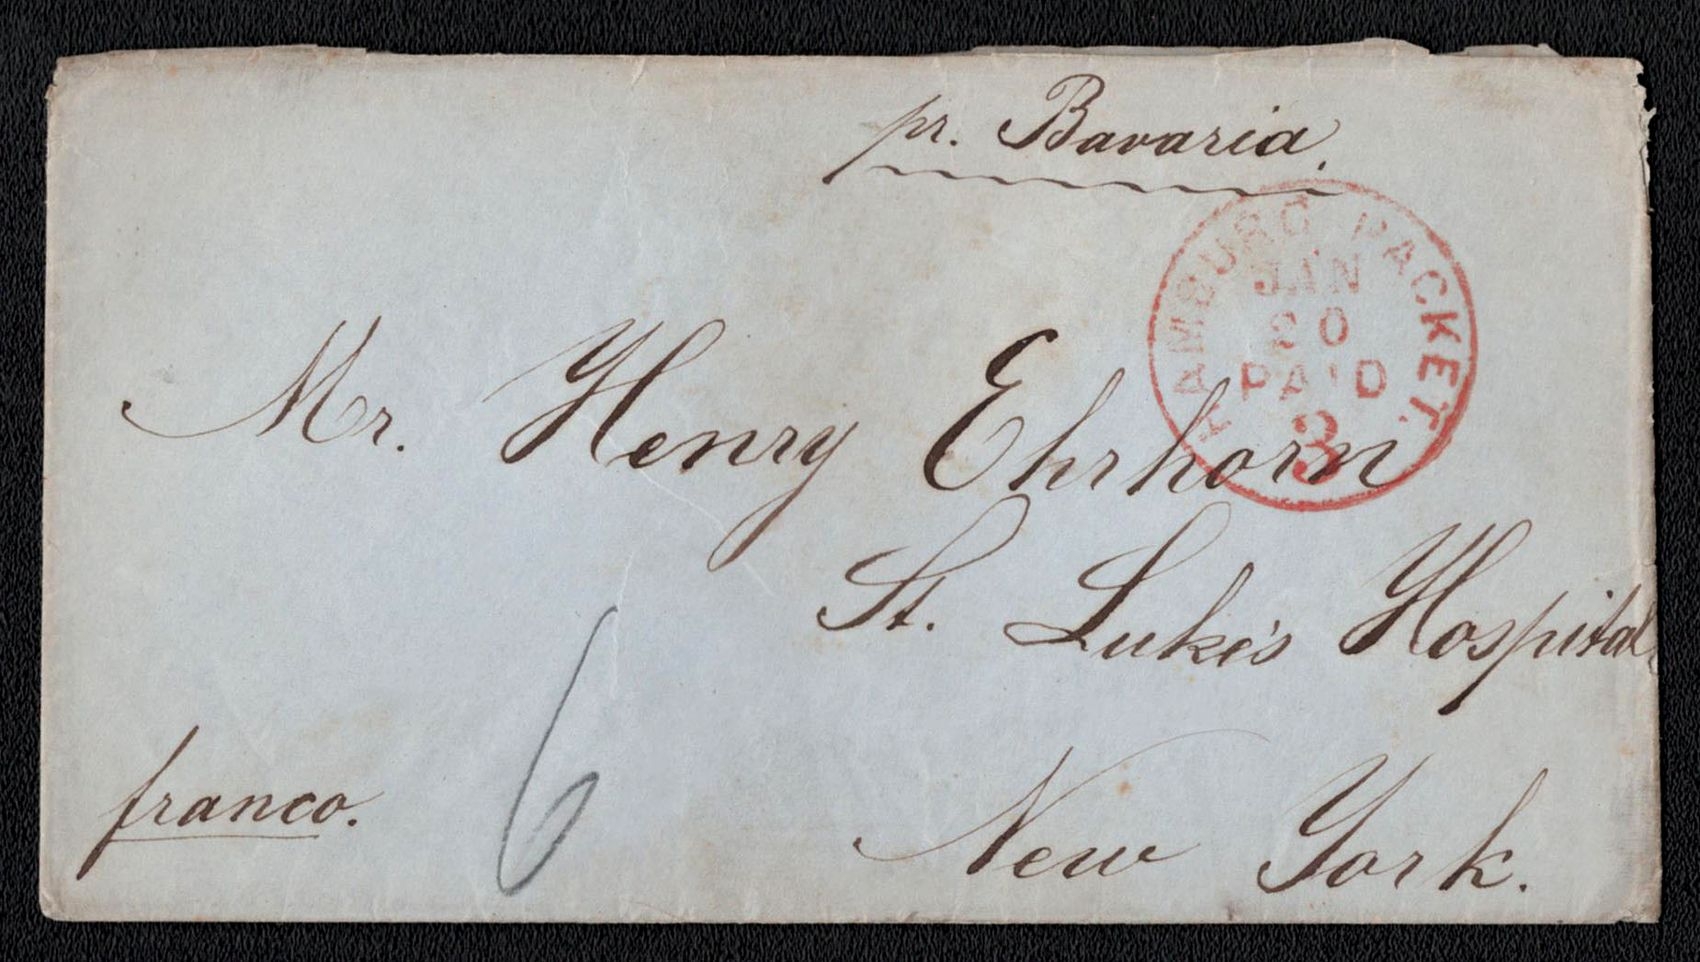 pr. Bavaria.
HAMBURG PACKET.
JAN
20
PAID
3
Mr. Henry Ehrhorn
St. Luke's Hospital,
New York.
franco.
6